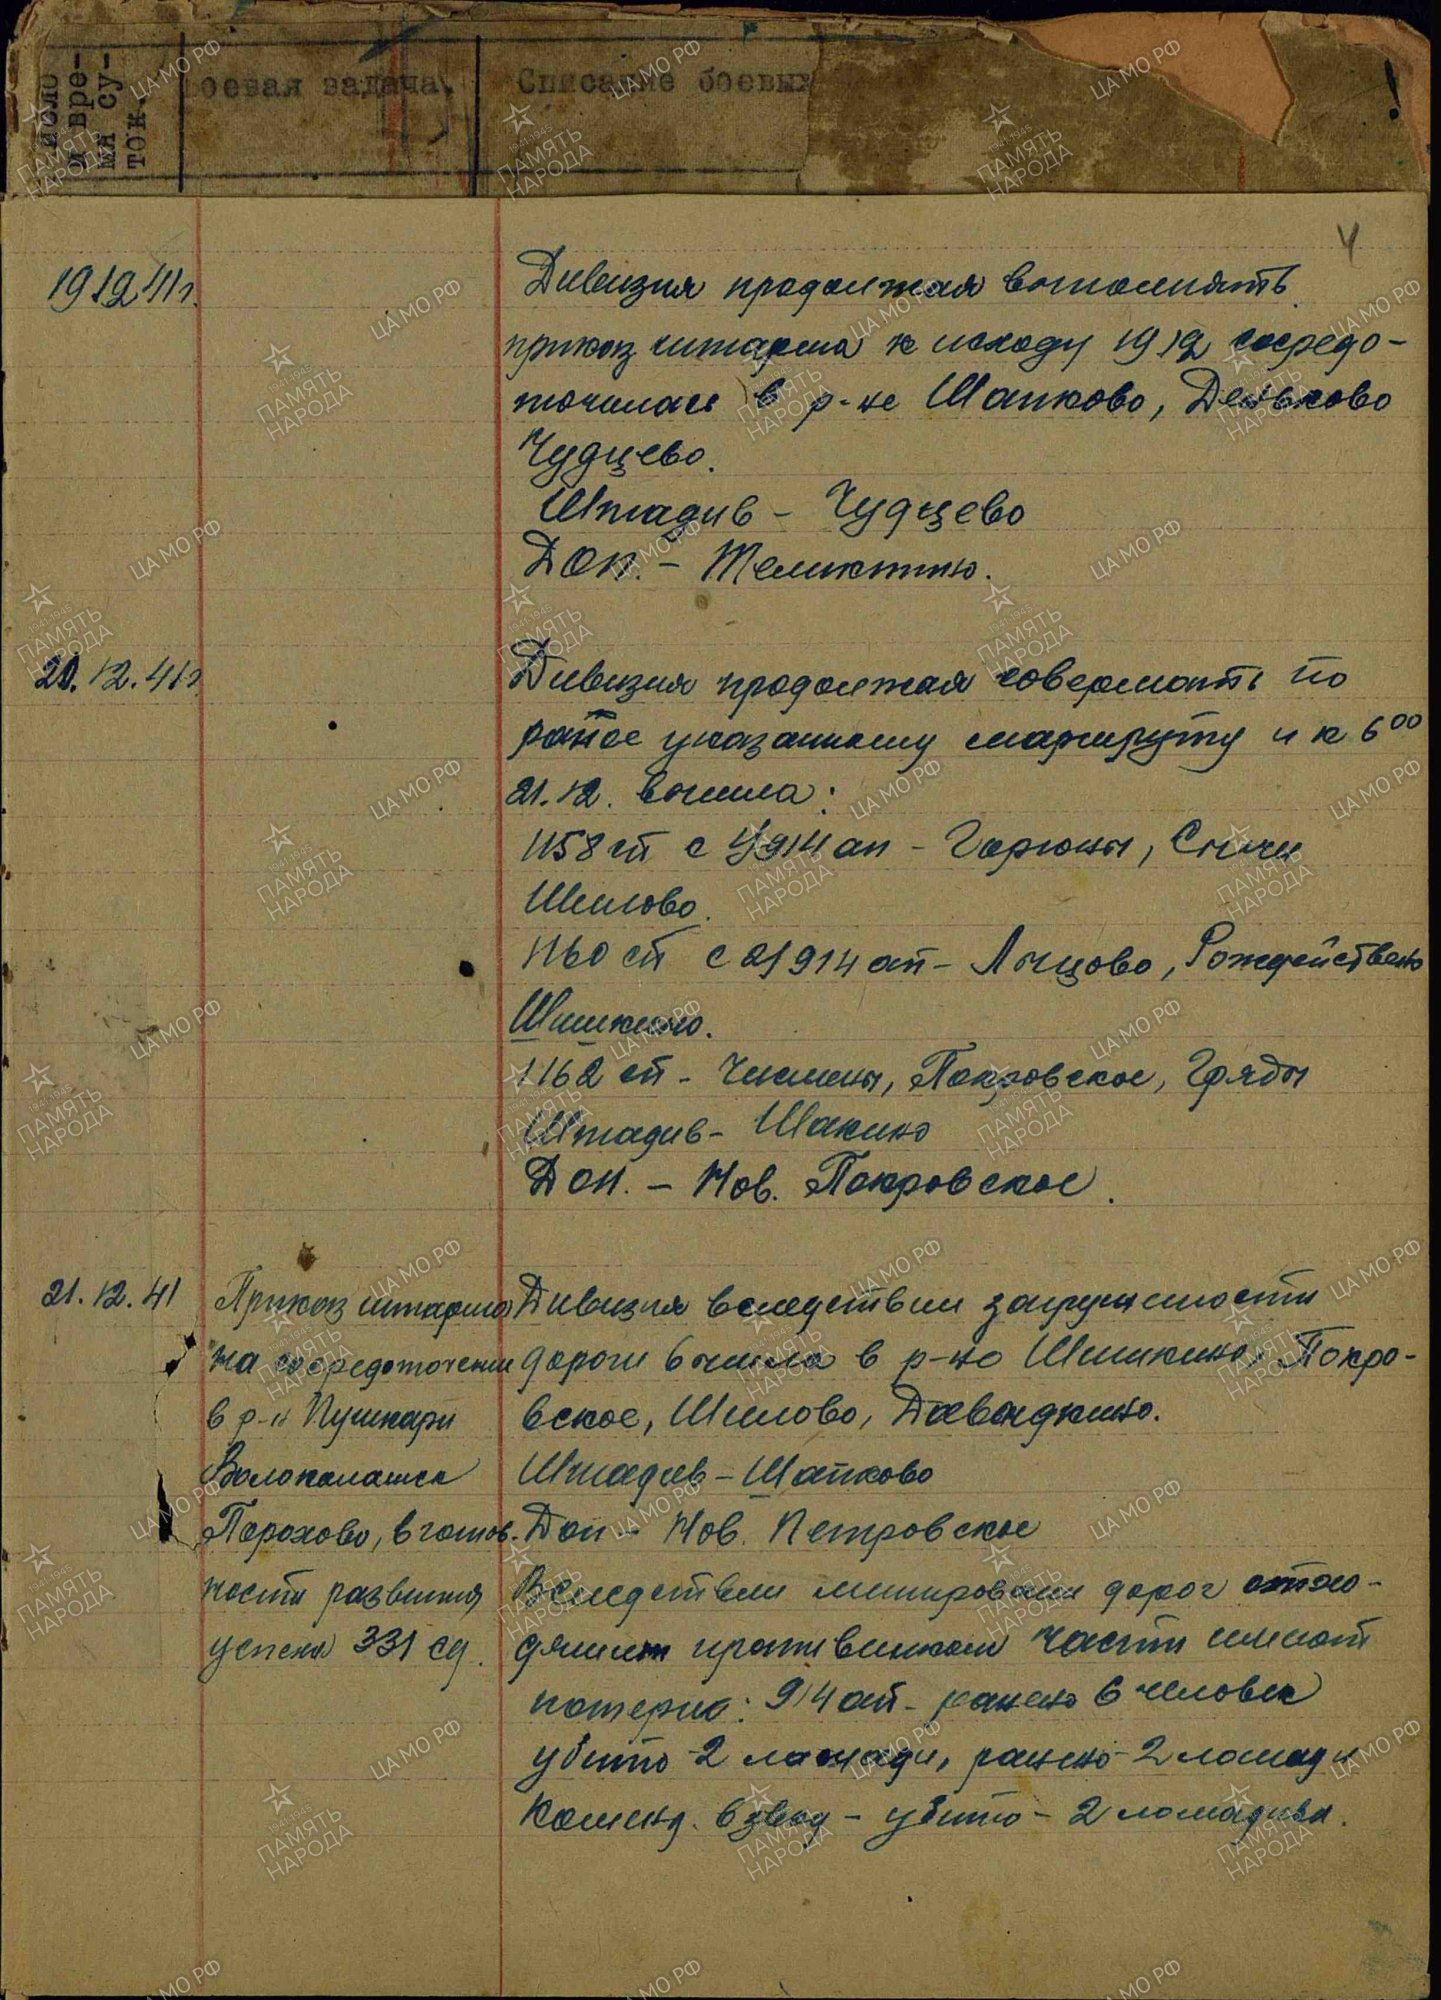 число и время суток.
Боевая задача.
Описание боевых
4
19 12 41г.
Дивизия продолжая выполнять
приказ штарма к исходу 19 12 сосредо-
точилась в р-не Шапково, Деньково
Чудцево.
Штадив – Чудцево
ДОП. –
20.12.41г
Дивизия продолжая совершать по
ранее указанному маршруту и к 6 00
21.12. вышла:
1158 сп с 1/914 ап – Горюны, Сычи
Шилово.
1160 сп с 2/914 ап – Лысцово, Рождествено
Шишкино.
1162 сп – Чисмены, Покровское, Гряды
Штадив – Шакино
ДОП. – Нов. Покровское.
21.12.41
Приказ штарма
на сосредоточение
в р-н Пушкари
Волоколамск
Порохово, в готов-
ности развития
успеха 331 сд.
Дивизия вследствии загруженности
дороги вышла в р-но Шишкино, Покро-
вское, Шилово, Давыдкино.
Штадив – Шапково
Доп – Нов. Петровское
Вследствии минировани дорог отхо-
дящим противником части имеют
потерю: 914 ап – ранено 6 человек
убито – 2 лошади, ранено – 2 лошади
Коменд. взвод – убито – 2 лошадива.